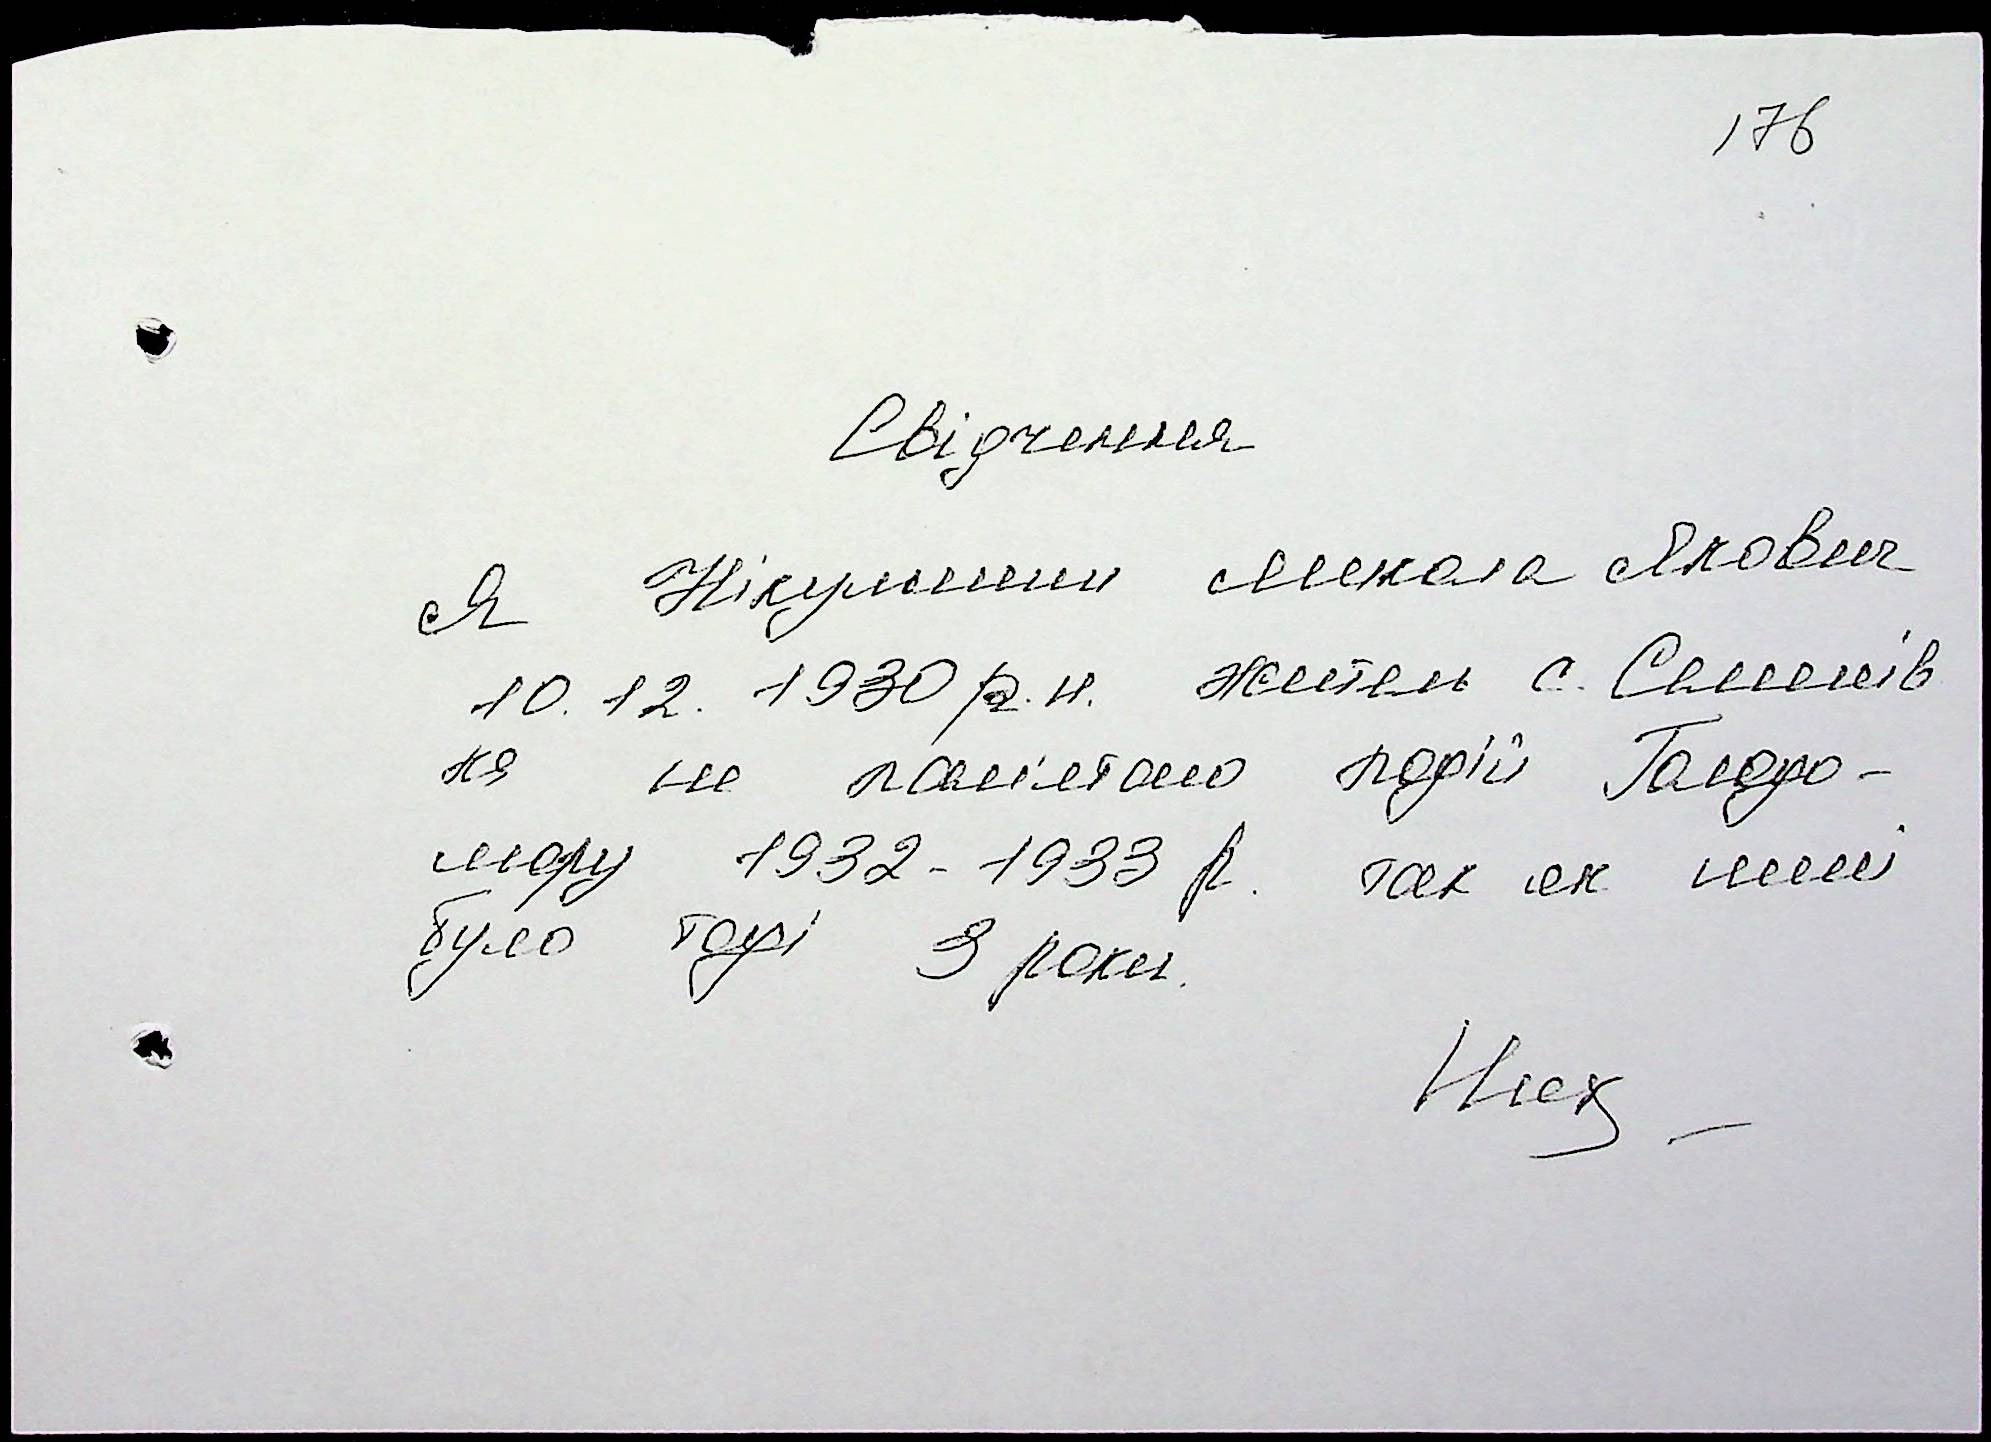 176
Свідчення
Я Нікулишин Микола Якович
10. 12. 1930 р.н. житель с. Семенів
ка не памʼятаю подій Голодо-
мору 1932-1933 р. так як мині
було тоді 3 роки.